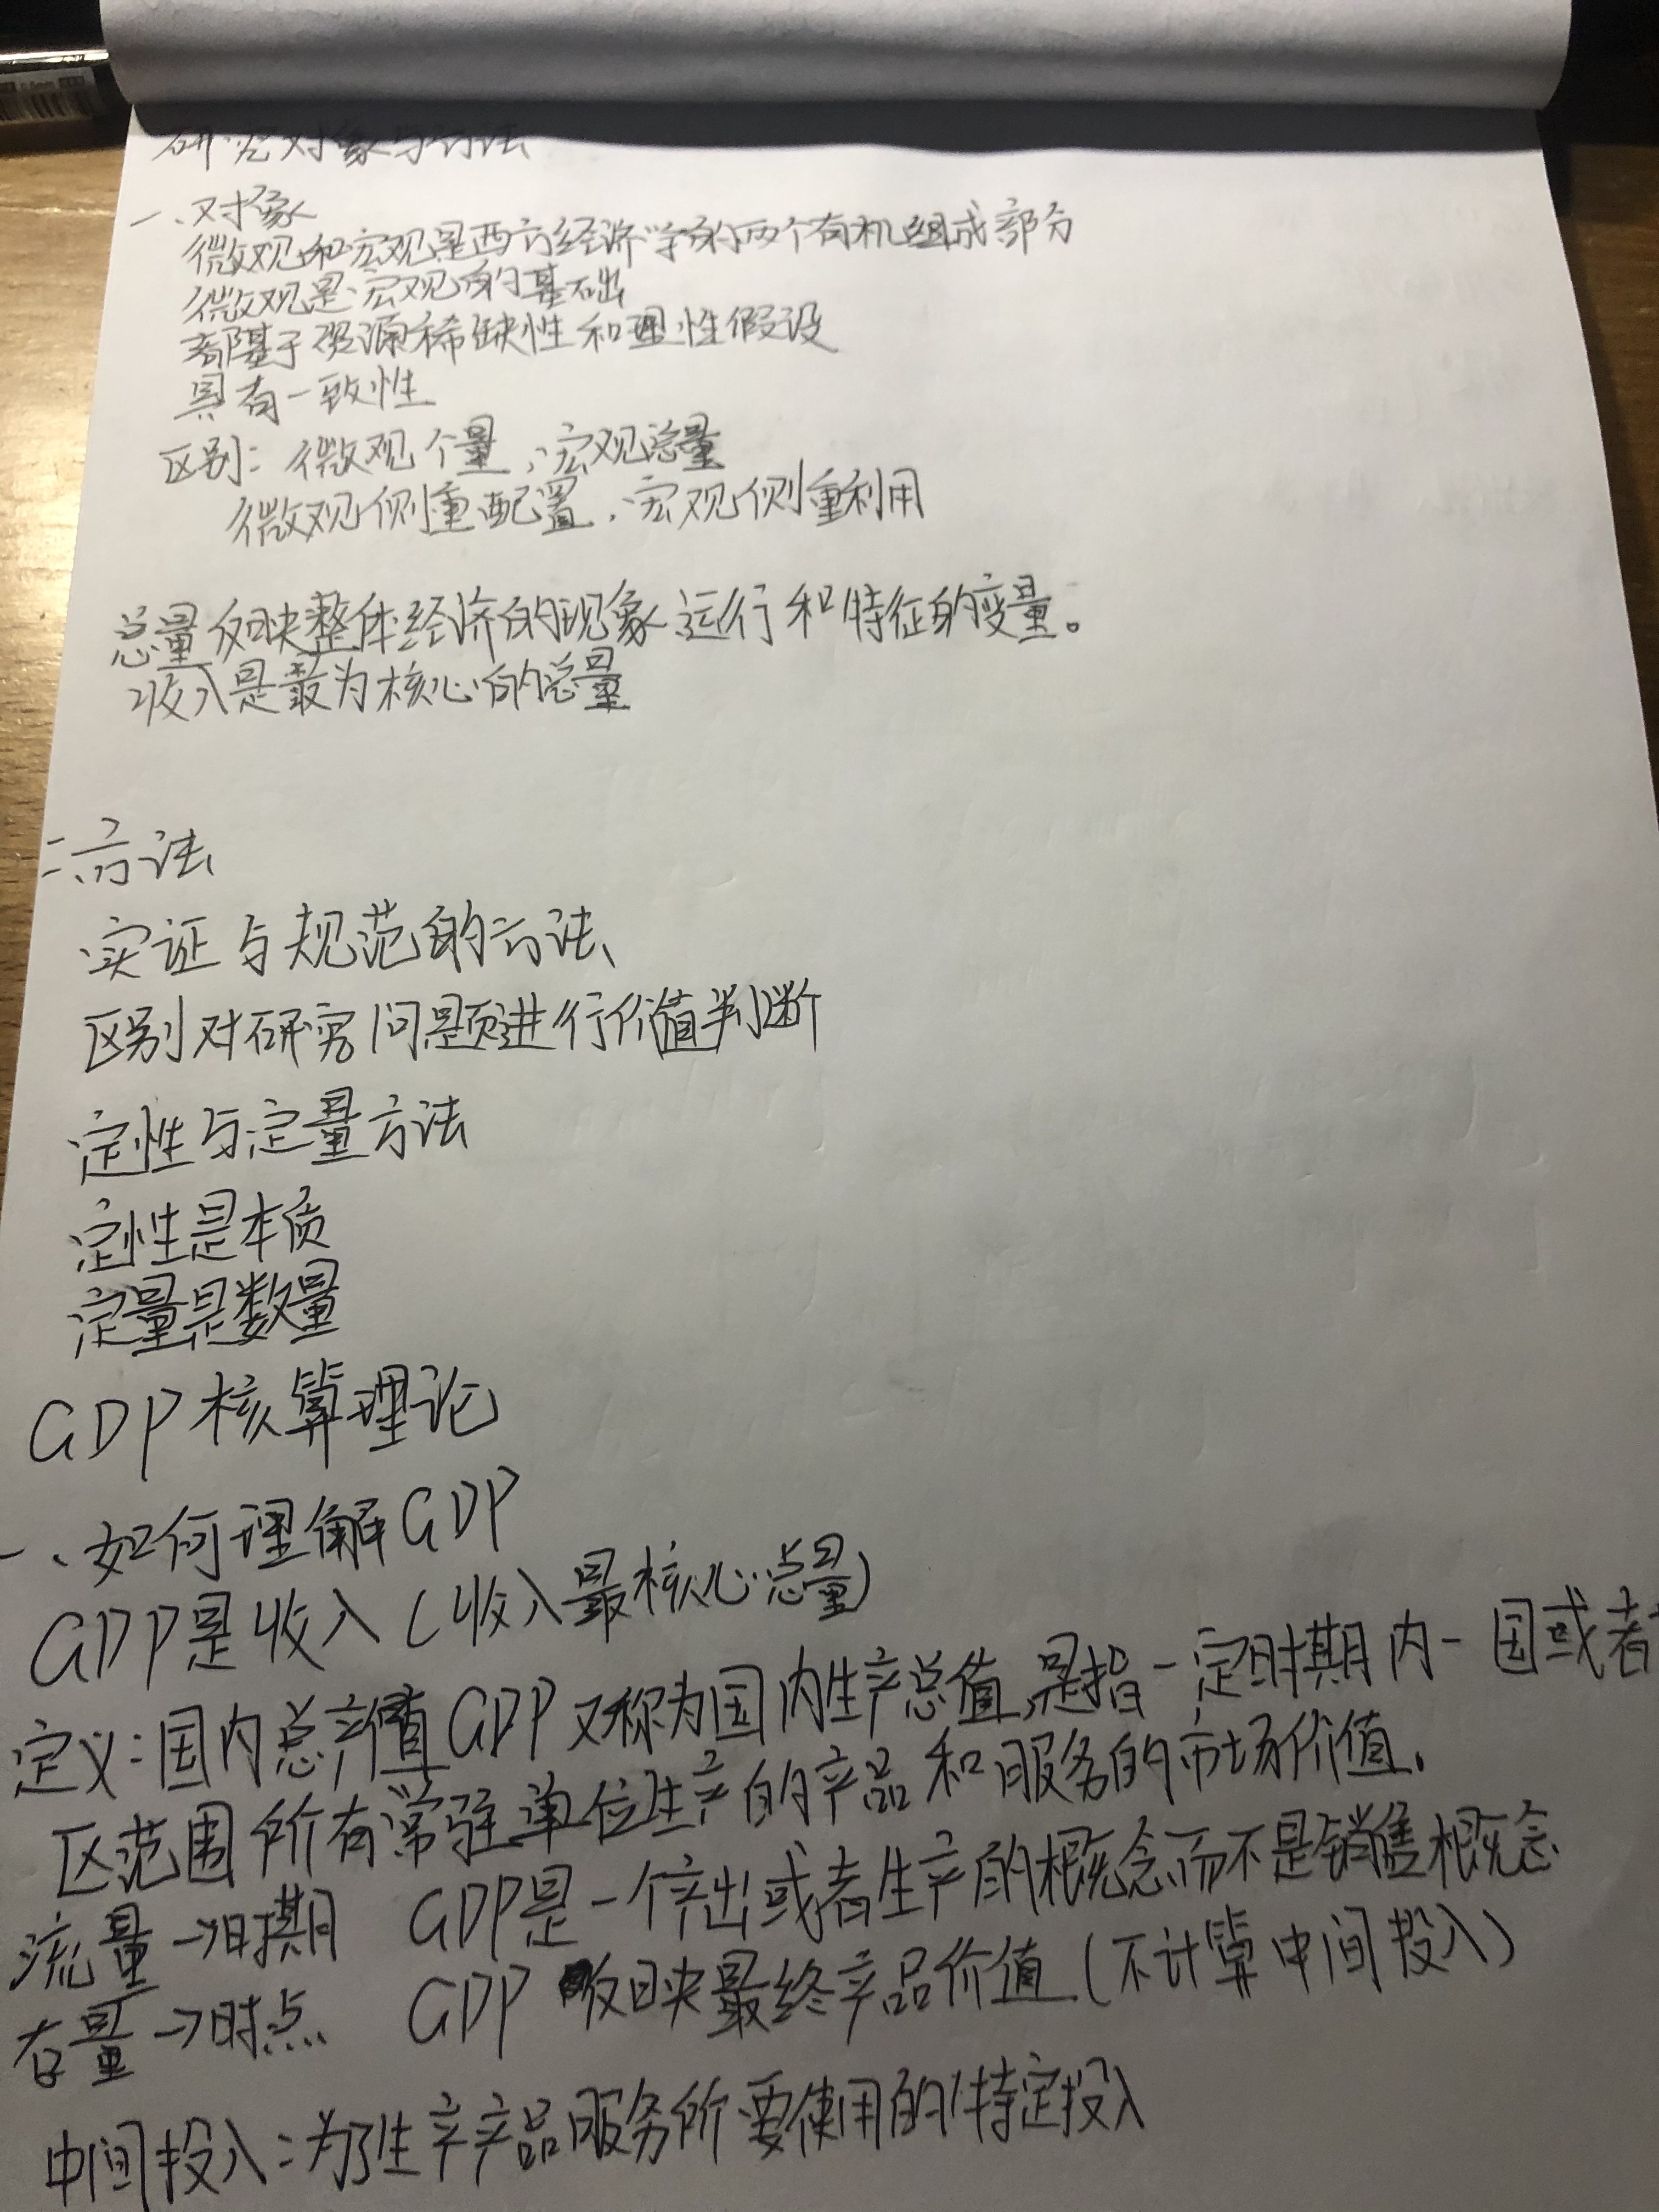 研究对象与方法
一、对象
微观和宏观是西方经济学的两个有机组成部分
微观是宏观的基础
都基于资源稀缺性和理性假设
具有一致性
区别：微观个量，宏观总量
微观侧重配置，宏观侧重利用
总量反映整体经济的现象运行和特征的变量。
收入是最为核心的总量
二、方法
实证与规范的方法
区别对研究问题进行价值判断
定性与定量方法
定性是本质
定量是数量
GDP核算理论
一、如何理解GDP
GDP是收入（收入最核心总量）
定义：国内总产值GDP又称为国内生产总值，是指一定时期内一国或者
区范围所有常驻单位生产的产品和服务的市场价值。
流量→时期 GDP是一个产出或者生产的概念而不是销售概念
存量→时点 GDP反映最终产品价值（不计算中间投入）
中间投入：为了生产产品服务所要使用的特定投入